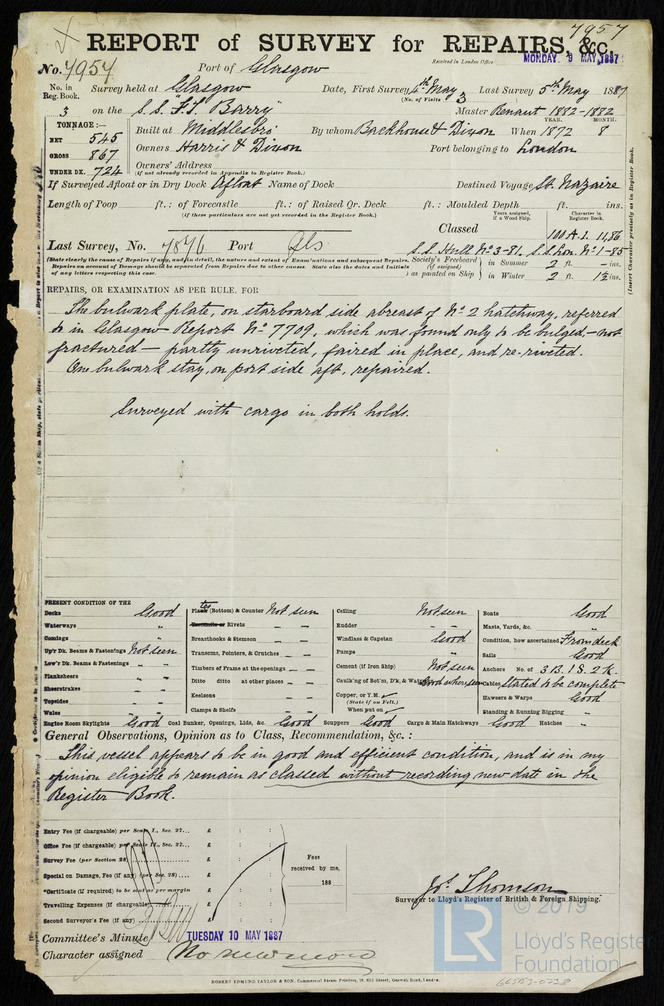 7957
REPORT of SURVEY for REPAIRS, &c.
Received in London Office MONDAY. 9 MAY, 1887
No. 7957 Port of Glasgow
No. in Reg. Book. Survey held at Glasgow Date, First Survey 4th May Last Survey 5th May 1887
(No. of Visits 3)
3 on the S.S. "F.T. Barry" Master Renaut 1882-1882
TONNAGE:— YEAR. MONTH.
NET 545 Built at Middlesbro' By whom Backhouse & Dixon When 1872 8
GROSS 867 Owners Harris & Dixon Port belonging to London
UNDER DK. 724 Owners' Address
(if not already recorded in Appendix to Register Book.)
If Surveyed Afloat or in Dry Dock Afloat Name of Dock Destined Voyage St. Nazaire
Length of Poop ft.: of Forecastle ft.: of Raised Qr. Deck ft.: Moulded Depth ft. ins.
(if these particulars are not yet recorded in the Register Book.) Years assigned, if a Wood Ship. Character in Register Book.
Classed 100 A.1. 11,86
Last Survey, No. 7876 Port Gls S.S. Hull No 3-81. S.S. Lon. No 1-85
(State clearly the cause of Repairs if any, and in detail, the nature and extent of Examinations and subsequent Repairs. Society's Freeboard (if assigned) in Summer 2 ft. — ins.
Repairs on account of Damage should be separated from Repairs due to other causes. State also the dates and Initials of any letters respecting this case. as painted on Ship in Winter 2 ft. 1½ ins.
REPAIRS, OR EXAMINATION AS PER RULE, FOR
The bulwark plate, on starboard side abreast of No 2 hatchway, referred
to in Glasgow Report No 7709, which was found only to be bulged,—not
fractured— partly unriveted, faired in place, and re-riveted.
One bulwark stay, on port side aft, repaired.
Surveyed with cargo in both holds.
PRESENT CONDITION OF THE
Decks Good
Waterways "
Comings "
Up'r Dk. Beams & Fastenings Not seen
Low'r Dk. Beams & Fastenings " "
Planksheers "
Sheerstrakes "
Topsides "
Wales "
Engine Room Skylights Good
Plates (Bottom) & Counter Not seen
Rivets
Breasthooks & Stemson
Transoms, Pointers, & Crutches
Timbers of Frame at the openings
Ditto ditto at other places
Keelsons
Clamps & Shelfs
Coal Bunker, Openings, Lids, &c. Good
Ceiling Not seen
Rudder "
Windlass & Capstan Good
Pumps "
Cement (if Iron Ship) Not seen
Caulk'ng of Bot'm, D'k, & Wat Good where seen
Copper, or Y.M.
(State if on Felt.)
When put on
Scuppers Good Cargo & Main Hatchways Good
Boats Good
Masts, Yards, &c. "
Condition, how ascertained From deck
Sails Good
Anchors No. of 3 B. 1 S. 2 K.
Cables Stated to be complete
Hawsers & Warps Good
Standing & Running Rigging "
Hatches "
General Observations, Opinion as to Class, Recommendation, &c.:
This vessel appears to be in good and efficient condition, and is in my
opinion eligible to remain as classed without recording new date in the
Register Book.
Entry Fee (if chargeable) per Scale I., Sec. 27... £ : :
Office Fee (if chargeable) per Scale II., Sec. 27... £ : :
Survey Fee (per Section 28) £ : :
Special on Damage, Fee (if any) (per Sec. 28).... £ : :
*Certificate (if required) to be sent as per margin
Travelling Expenses (if chargeable) £ : :
Second Surveyor's Fee (if any) £ : :
Fees received by me, 188
Jos. Thomson
Surveyor to Lloyd's Register of British & Foreign Shipping.
Committee's Minute TUESDAY 10 MAY 1887
Character assigned
ROBERT EDMUND TAYLOR & SON, Commercial Steam Printers, 19, Old Street, Goswell Road, London.
(Insert Character precisely as in Register Book.
© 2019
LR
Lloyd's Register
Foundation